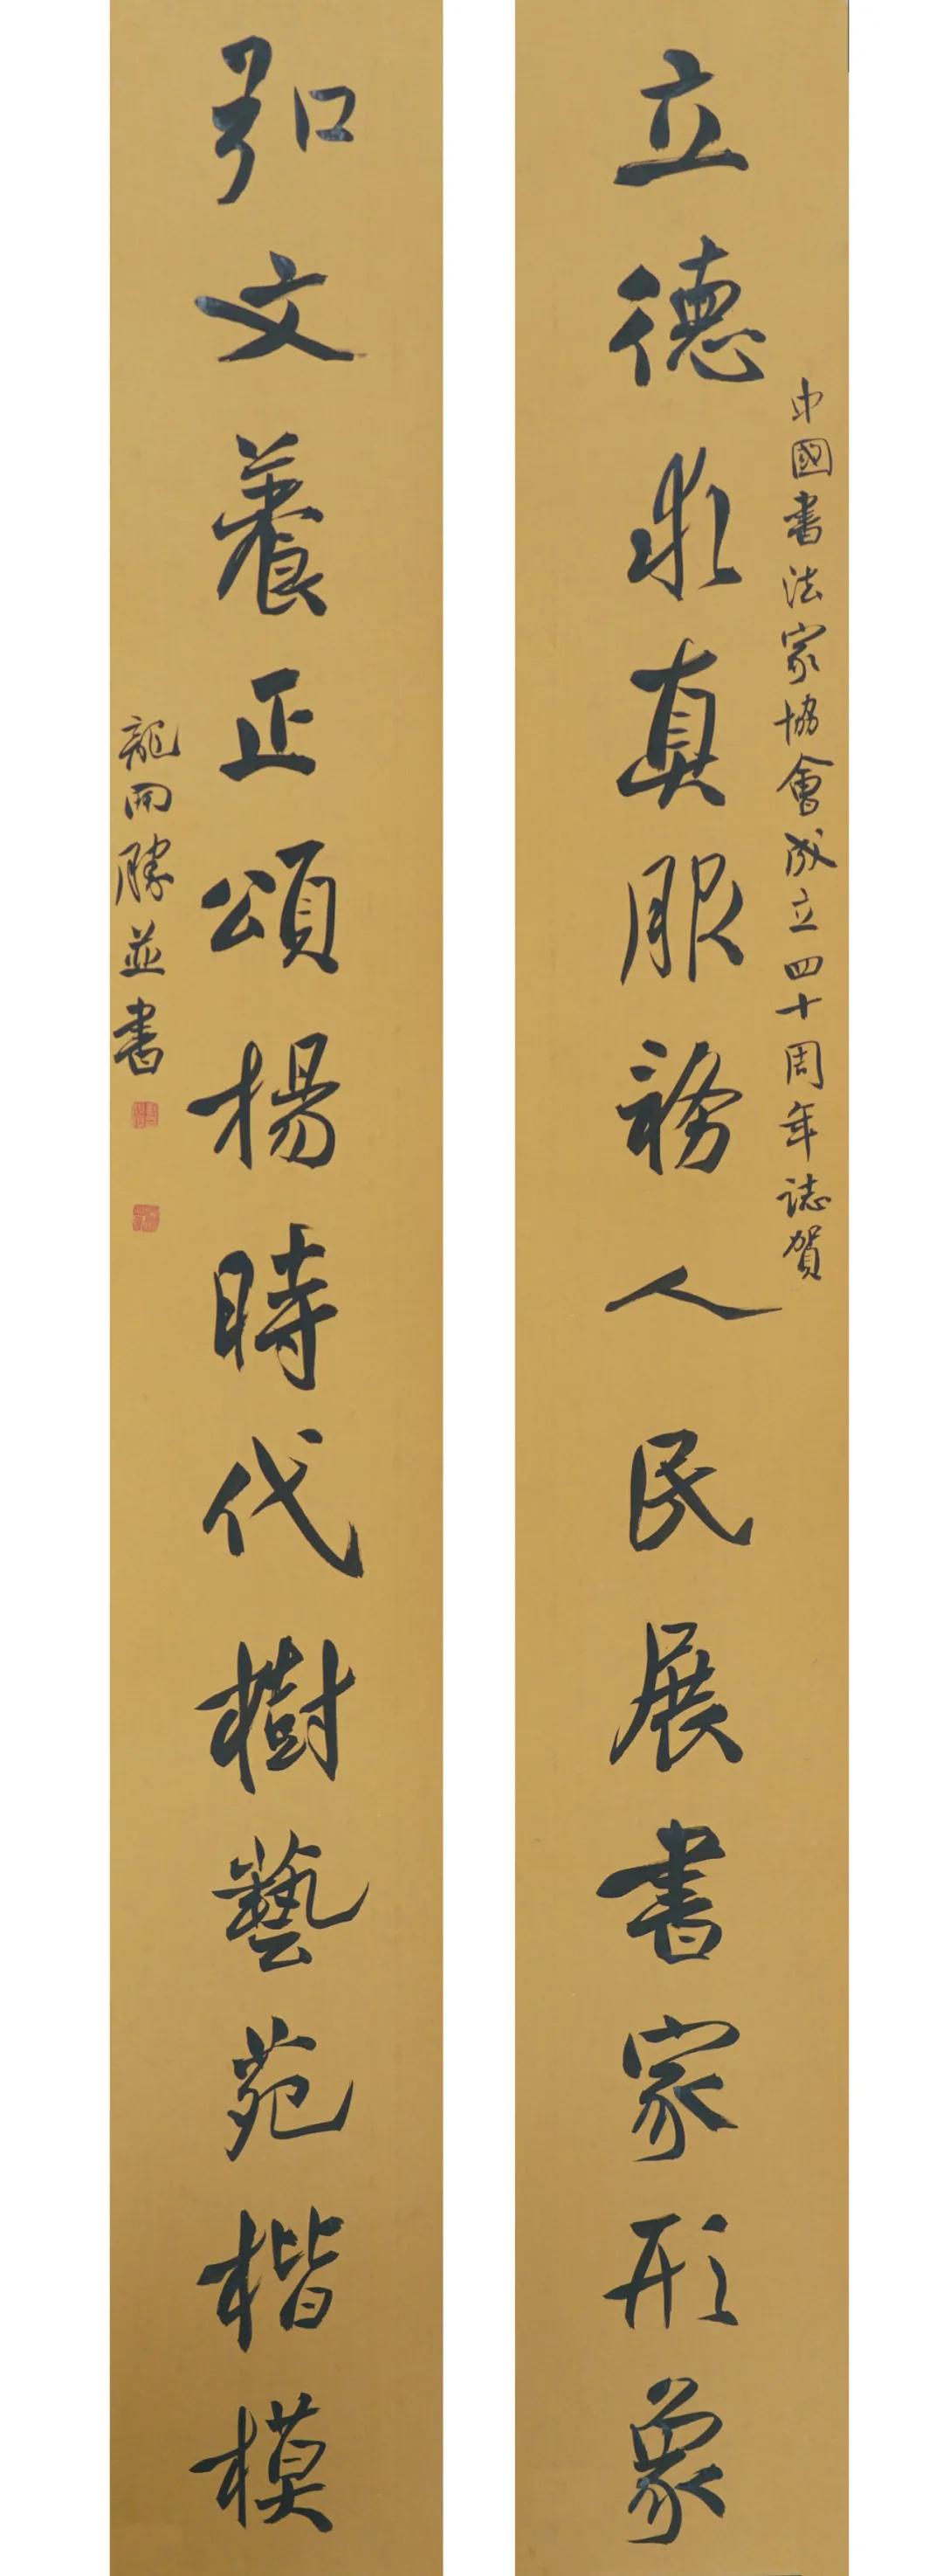 中國書法家協會成立四十周年誌賀
立德求真服務人民展書家形象
弘文養正頌楊時代樹藝苑楷模
龍開勝並書